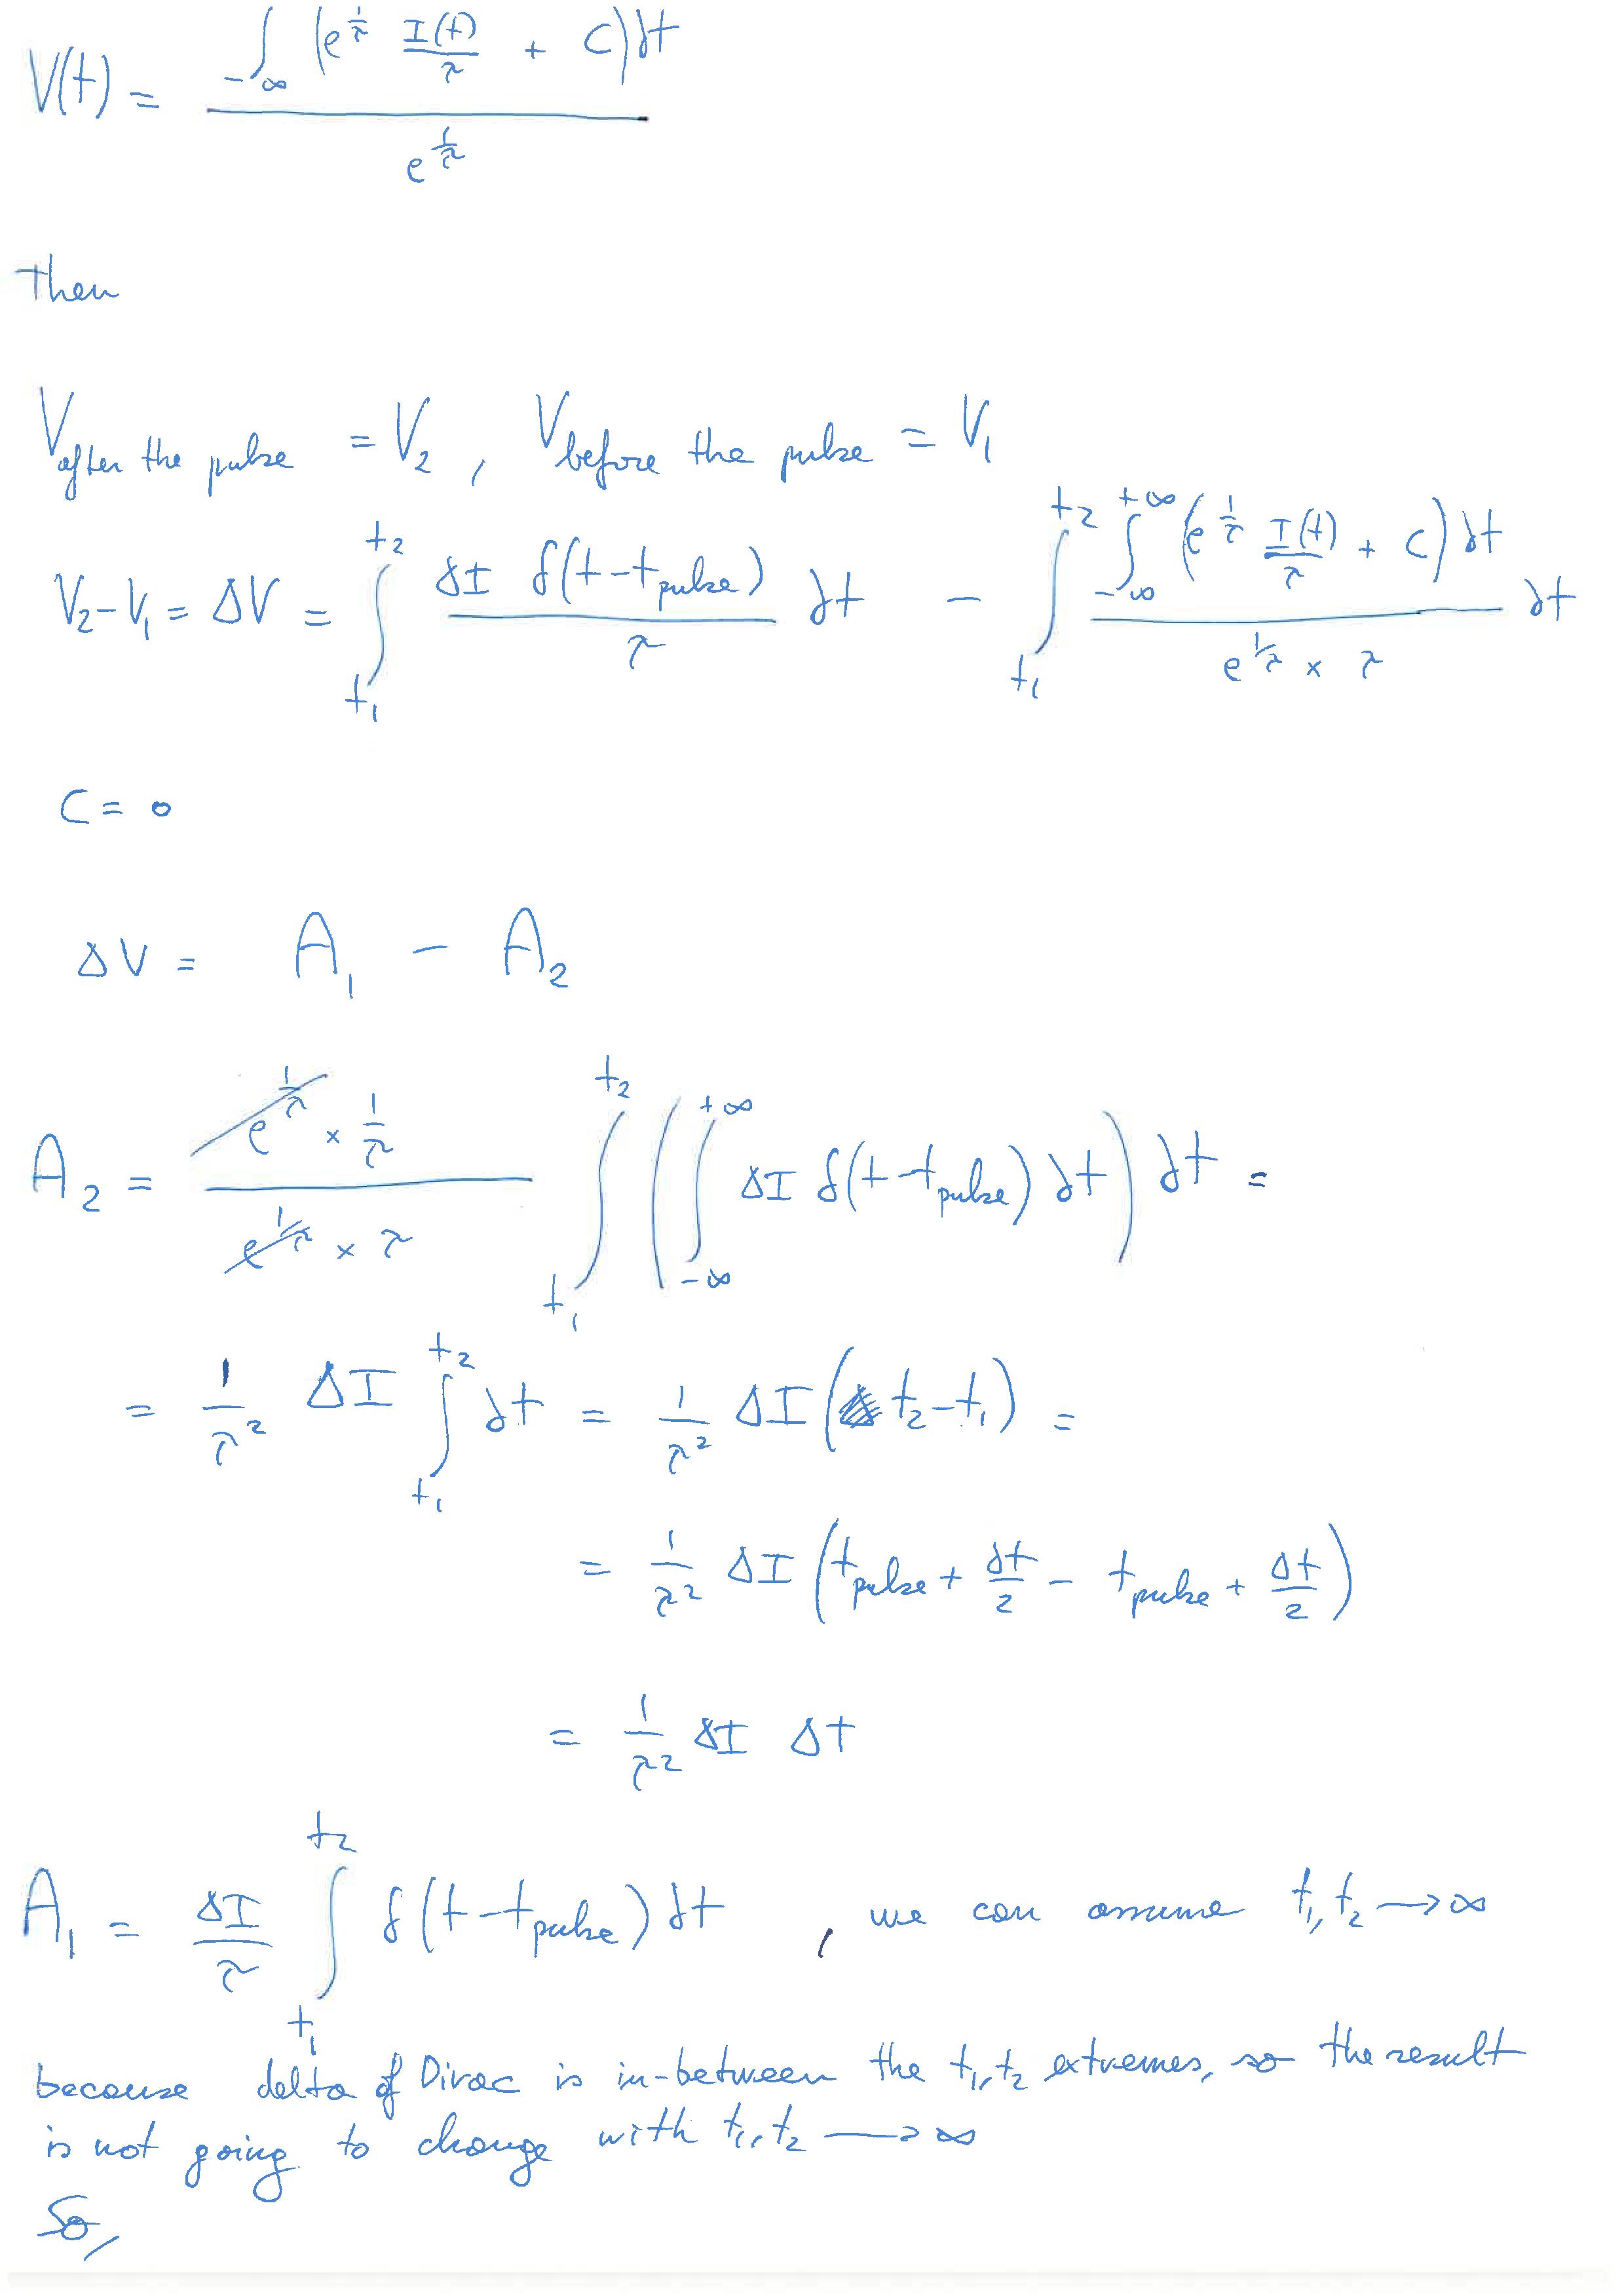 V(t) = ∫_{-∞} (e^{1/τ} I(t)/τ + C) dt / e^{1/τ}
Then
V_{after the pulse} = V_2 , V_{before the pulse} = V_1
V_2 - V_1 = ΔV = ∫_{t_1}^{t_2} ΔI δ(t - t_{pulse}) / τ dt - ∫_{t_1}^{t_2} ∫_{-∞}^{+∞} (e^{1/τ} I(t)/τ + C) dt / (e^{1/τ} × τ) dt
C = 0
ΔV = A_1 - A_2
A_2 = (e^{1/τ} × 1/τ) / (e^{1/τ} × τ) ∫_{t_1}^{t_2} (∫_{-∞}^{+∞} ΔI δ(t - t_{pulse}) dt) dt =
= 1/τ^2 ΔI ∫_{t_1}^{t_2} dt = 1/τ^2 ΔI (t_2 - t_1) =
= 1/τ^2 ΔI (t_{pulse} + Δt/2 - t_{pulse} + Δt/2)
= 1/τ^2 ΔI Δt
A_1 = ΔI/τ ∫_{t_1}^{t_2} δ(t - t_{pulse}) dt , we can assume t_1, t_2 → ∞
because delta of Dirac is in-between the t_1, t_2 extremes, so the result
is not going to change with t_1, t_2 → ∞
So,